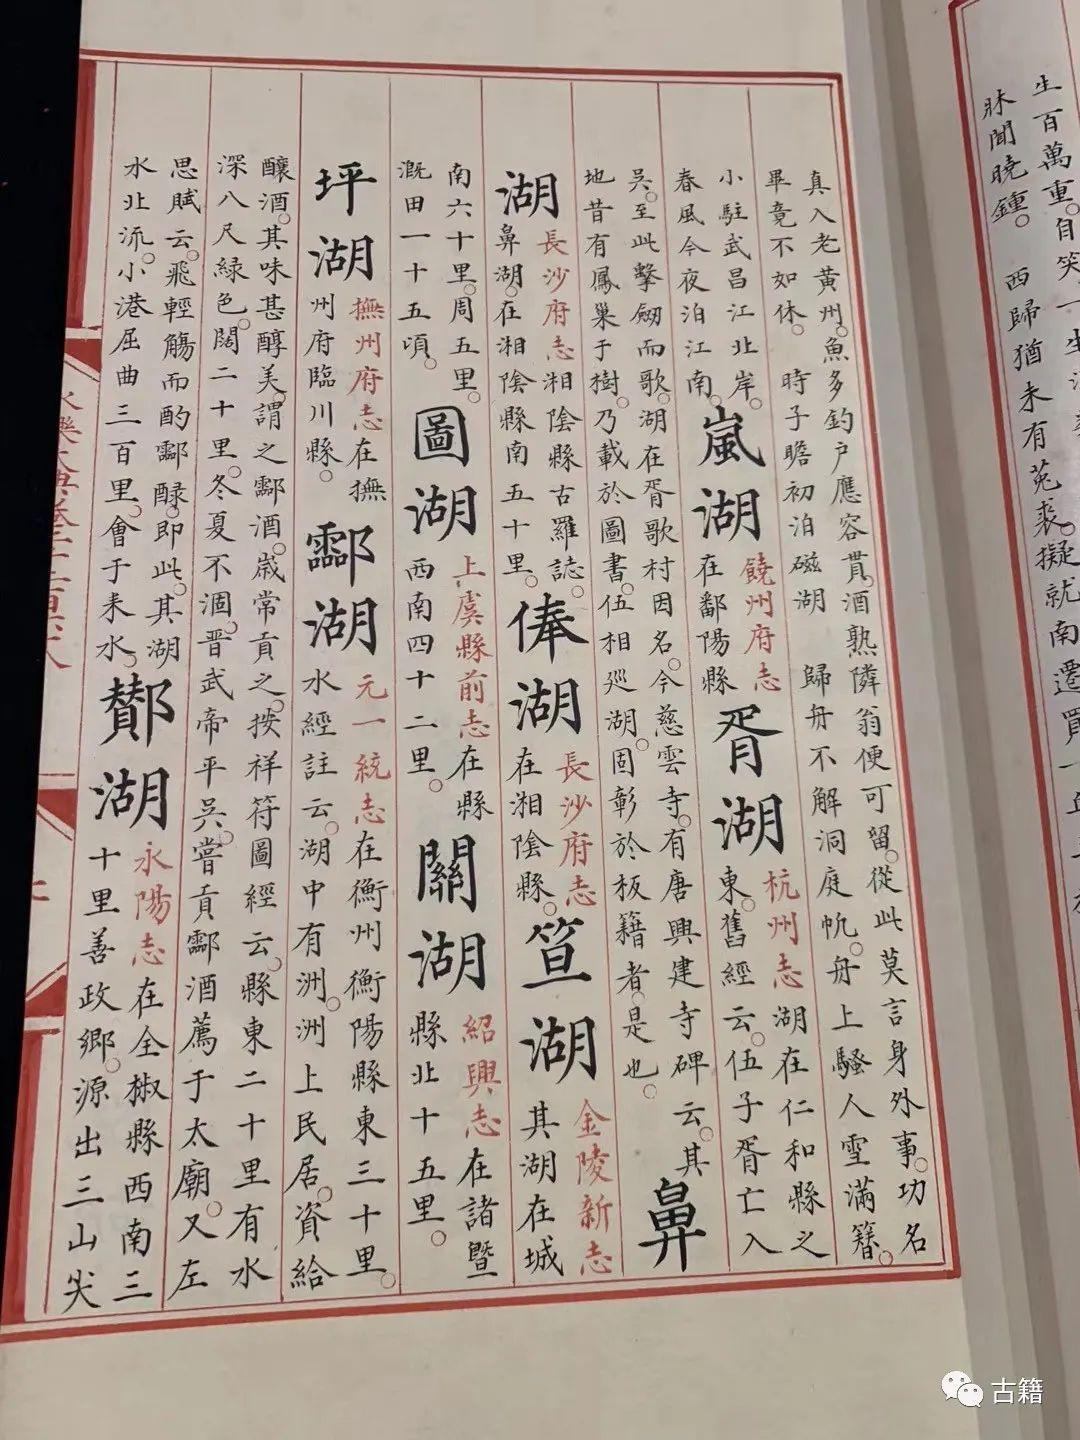 生百萬重。自笑一生
牀聞曉鍾。 西歸猶未有菟裘。擬就南遷買一
真入老黄州。魚多釣户應容貰。酒熟隣翁便可留。從此莫言身外事。功名
畢竟不如休。 時子瞻初泊磁湖 歸舟不解洞庭帆。舟上騷人雪滿簪。
小駐武昌江北岸。
春風今夜泊江南。
嵐湖
饒州府志
在鄱陽縣
胥湖
杭州志湖在仁和縣之
東。舊經云。伍子胥亡入
吳。至此擊劒而歌。湖在胥歌村因名。今慈雲寺。有唐興建寺碑云。其
地昔有鳳巢于樹。乃載於圖書。伍相廵湖。固彰於板籍者。是也。
鼻
湖
長沙府志湘陰縣古羅誌。
鼻湖。在湘陰縣南五十里。
俸湖
長沙府志
在湘陰縣。
笪湖
金陵新志
其湖在城
南六十里。周五里。
溉田一十五頃。
圖湖
上虞縣前志在縣
西南四十二里。
關湖
紹興志在諸暨
縣北十五里。
坪湖
撫州府志在撫
州府臨川縣。
酃湖
元一統志在衡州衡陽縣東三十里。
水經註云。湖中有洲。洲上民居。資給
釀酒。其味甚醇美。謂之酃酒。歲常貢之。按祥符圖經云。縣東二十里有水
深八尺緑色。闊二十里。冬夏不涸。晉武帝平吳。嘗貢酃酒薦于太廟。又左
思賦云。飛輕觴而酌酃醁。即此。其湖
水北流。小港屈曲三百里。會于耒水。
酇湖
永陽志在全椒縣西南三
十里善政鄉。源出三山尖
古籍